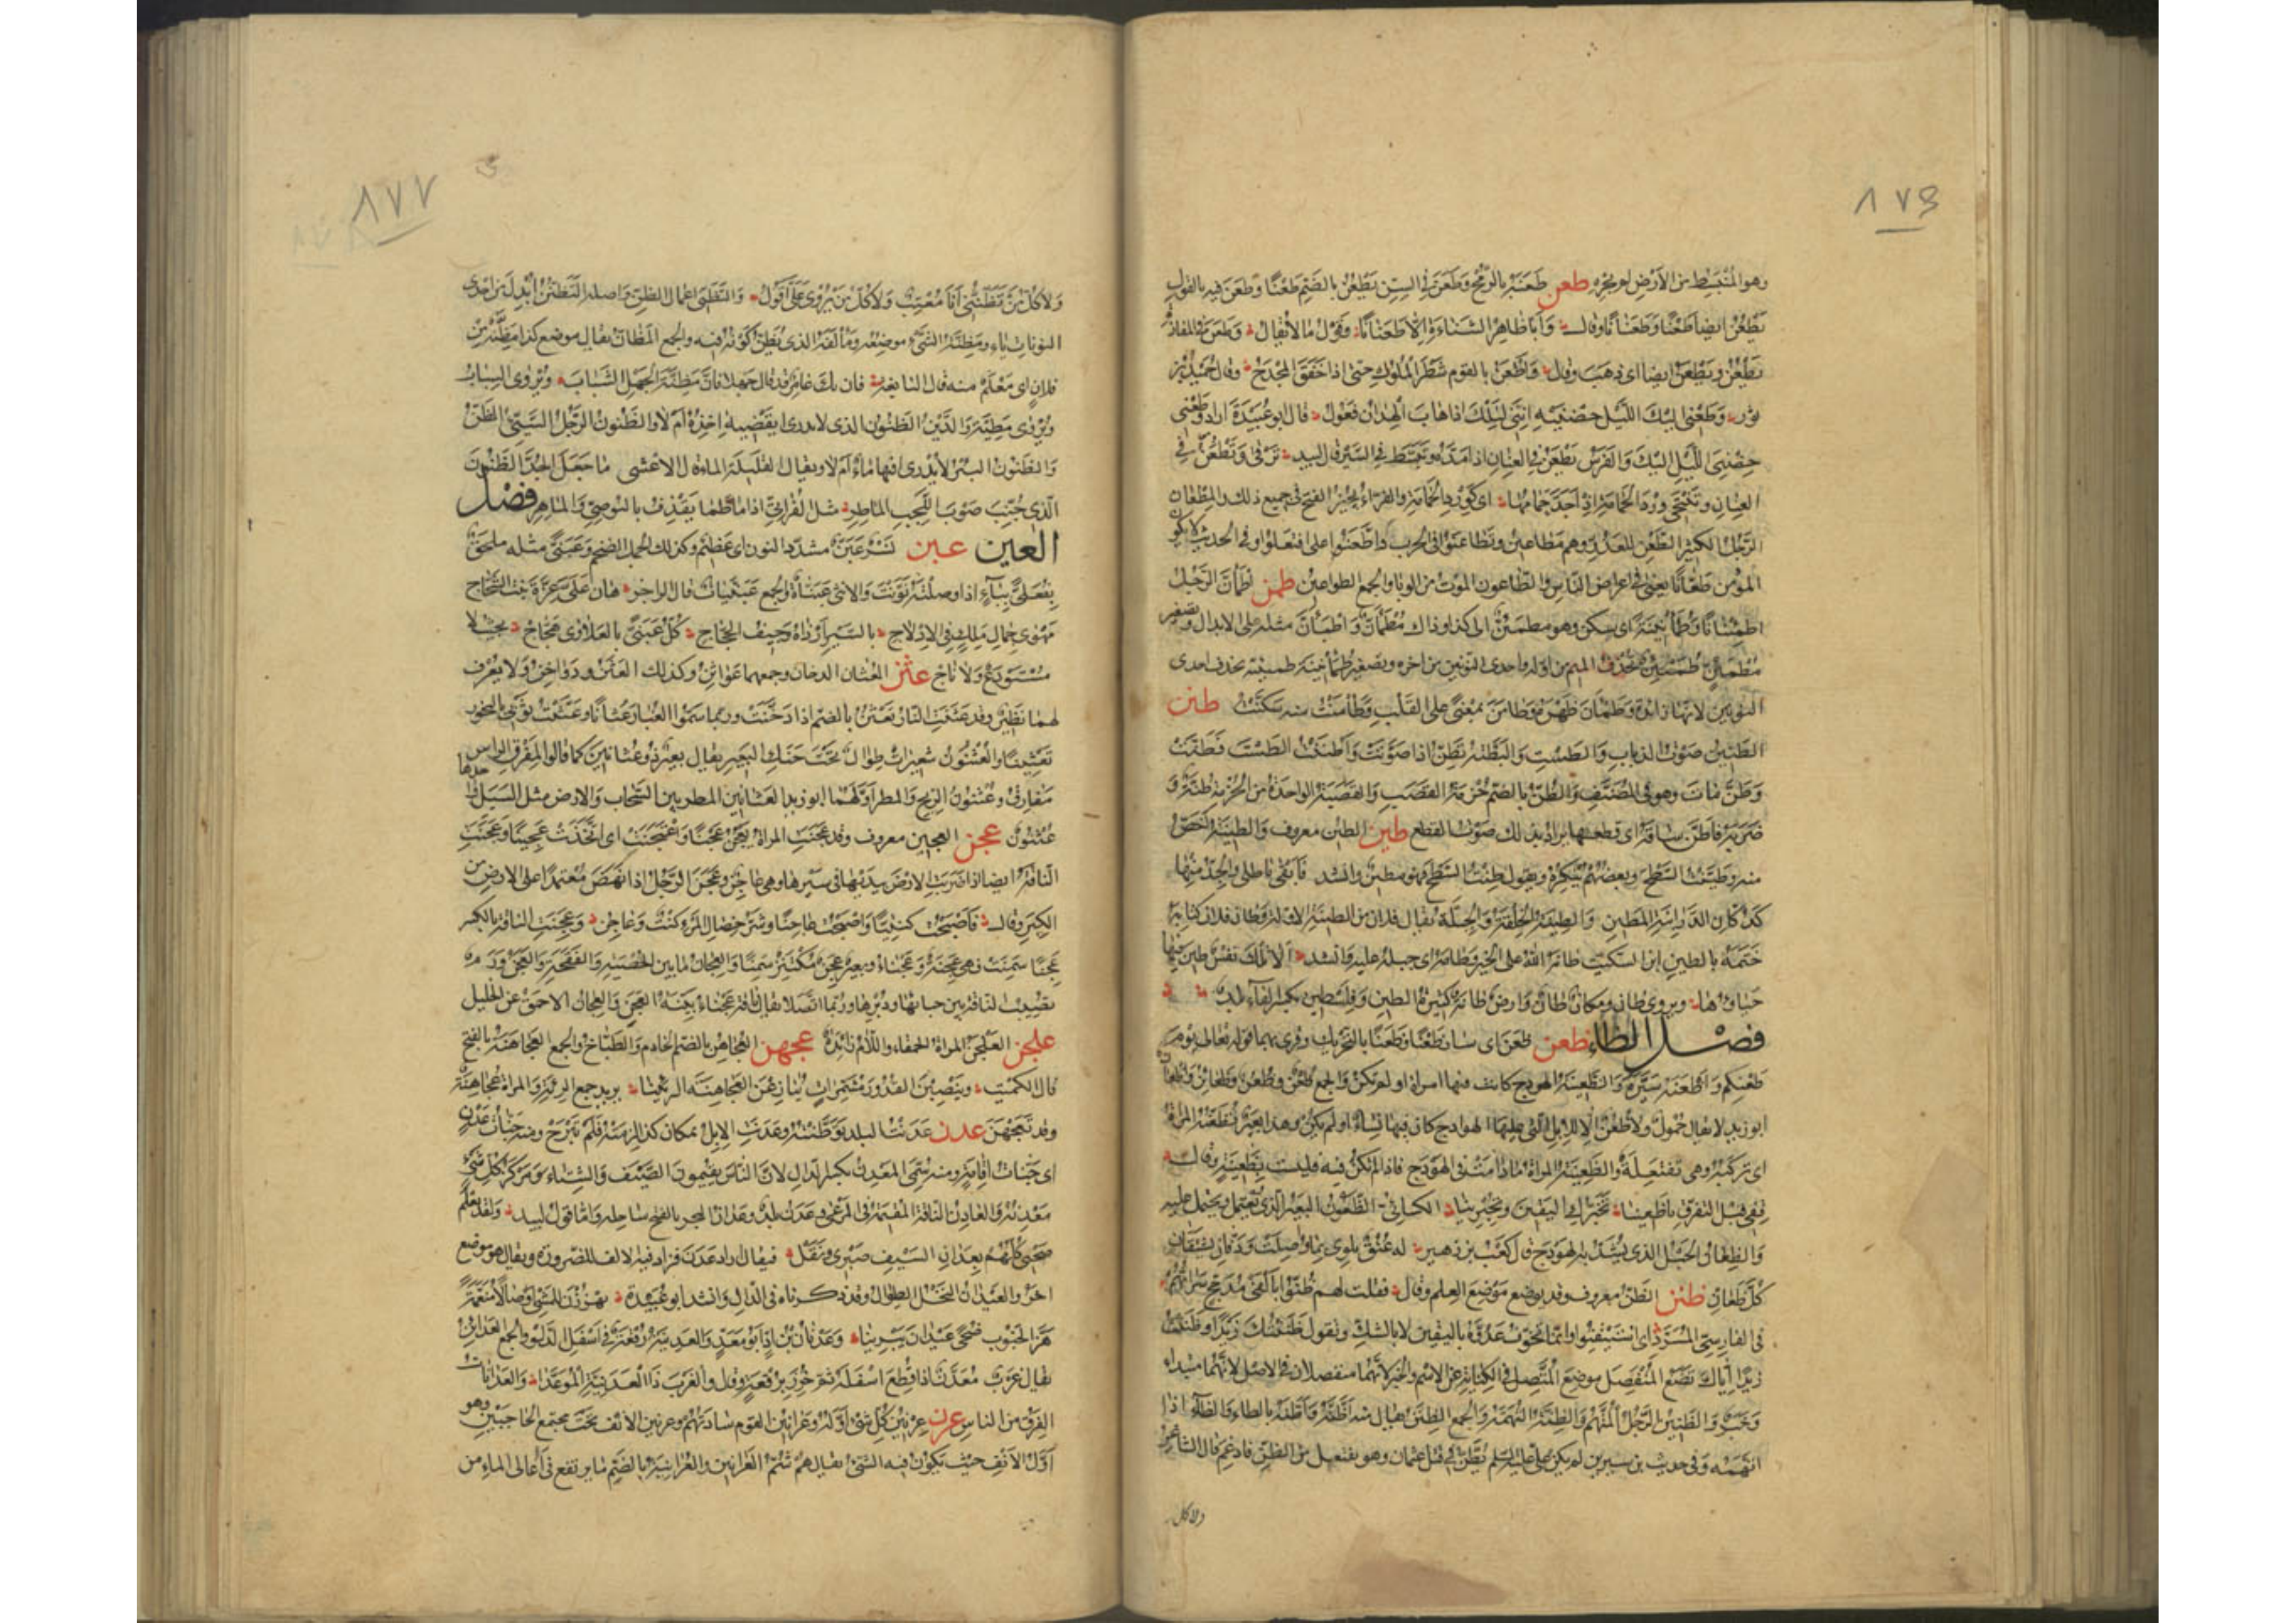 ٨٧٦
وهو المُنْبَسِط من الأرض لم يجزه طعن طَعَنَهُ بالرُّمْح وطَعَنَ في السِنّ يَطْعُنُ بالضَّمِّ طَعْنًا وطَعَنَ فيه بالقول
يَطْعُنُ ايضا طَعْنًا وطَعَنَانًا وقال وَأبَا ظاهِرُ الشَنَاءَةِ إلَّا طَعَنَانًا وقَوْلَ مَا لا يُقَالُ وطَعَنَ في المفازة
يَطْعُنُ ويَطْعَنُ ايضا اى ذهب وقال وأَطْعَنُ بالقوم شَطْرَ المُلُوكِ حتى اذا خَفَقَ المِجْدَحُ وقال حُمَيْدُ بن
ثور وطَعْنِى إليك اللَّيْلَ حِضْنَيْهِ إنَّنِى لِتِلْكَ اذا هابَ الهِدَانُ فَعُولُ قال ابو عُبَيْدَةَ اراد وطَعْنِى
حِضْنَىِ اللَّيْلِ اليك والفَرَسُ يَطْعَنُ في العِنَانِ اذا مَدَّهُ وتَبَسَّطَ في السَّيْرِ قال لبيد تَرْقَى وتَطْعُنُ في
العِنَانِ وتَنْتَحِى وِرْدَ الحَمَامَةِ إذْ أَجَدَّ حَمَامُهَا اى كَوِرْدِ الحَمَامَةِ والفرّاءُ يُجِيزُ الفتحَ في جميع ذلك والمِطْعَانُ
الرَّجُلُ الكثيرُ الطَّعْنِ للعَدُوِّ وهم مَطَاعِينُ وتَطَاعَنُوا في الحرب واطَّعَنُوا على افتعلوا وفي الحديث لا يكون
المؤمن طَعَّانًا يعنى في اعراض النّاس والطّاعون الموت من الوبا والجمع الطواعين طمن اطْمَأَنَّ الرَّجُلُ
اطْمِئْنَانًا وطُمَأْنِينَةً اى سكن وهو مطمئنّ الى كذا وذاك مُطْمَأَنٌّ واطْبَأَنَّ مثله على الابدال وتصغير
مُطْمَئِنٍّ طُمَيْئِنٌ بحذف الميم من اوّله واحدى النونين من آخره وتصغير طُمَأْنِينَةٍ طميئينة بحذف احدى
النونين لانها زائدة وطَمْأَنَ ظَهْرَهُ وطَأْمَنَ بمعنىً على القَلْبِ وطَأْمَنْتُ منه سَكَّنْتُ طنن
الطَّنِينُ صَوْتُ الذباب والطَسْتِ والبَطَّةُ تَطِنُّ اذا صَوَّتَتْ وأَطْنَنْتُ الطَسْتَ فَطَنَّتْ
وطَنَّ مَاتَ وهو في المُصَنَّفِ والطُنُّ بالضمّ حُزْمَةُ القَصَبِ والقَصَبَةُ الواحدةُ من الحُزْمَةِ طُنَّةٌ و
ضَرَبَهُ فأطَنَّ ساقَهُ اى قطعها يراد بذلك صوتُ القطع طين الطين معروف والطِينَةُ أخَصُّ
منه وطَيَّنْتُ السَّطْحَ وبعضهم يُنْكِرُهُ ويقول طِنْتُ السَّطْحَ فهو مطين وانشد فأبْقَى باطلى والجِدُّ منها
كَدُكّانِ الدَّرَابِنَةِ المَطِينِ والطِينَةُ الخِلْقَةُ والجِبِلَّةُ يقال فلان من الطينة الاولى وطان فلان كتابه
خَتَمَهُ بالطين ابن السكيت طانَهُ الله على الخير وطَامَهُ اى جبله عليه وانشد ألا تِلْكَ نَفْسٌ طِينَ فيها
حَيَاؤُهَا ويروى طان ومكان طانٌ وارض طانَةٌ كثيرة الطين وفِلَسْطِين بكسر الفاء بلد
فصل الظاء ظعن ظَعَنَ اى سار ظَعْنًا وظَعَنًا بالتحريك وقرئ بهما قوله تعالى يوم
ظعنكم وأَظْعَنَهُ سَيَّرَهُ والظَعِينَةُ الهودج كانت فيها امراة او لم تكن والجمع ظُعْنٌ وظُعُنٌ وظعائن واظعان
ابو زيد لا يقال حُمُولٌ ولا ظُعُنٌ إلّا للإبل التى عليها الهوادج كان فيها نساءٌ او لم يكن وهذا بعيرٌ تَظَّعِنُهُ المراة
اى تركبه وهى تفتعله والظَعِينَةُ المراة ما دامت في الهودج فاذا لم تكن فيه فليست بظعينة وقال
قِفِى قبل التفرّق يا ظعينا نُخَبِّرُكِ اليقين وتُخْبِرِينا الكسائىّ الظَّعُونُ البعير الذى يُعْتَمَلُ ويحتمل عليه
والظِعَانُ الحبل الذى يُشَدُّ به الهودج قال كعب بن زهير له عُنُقٌ تُلْوِى بما وُصِلَتْ به ودَفّانِ يَشْتَفّانِ
كُلَّ ظِعَانِ ظنن الظنّ معروف وقد يوضع موضع العلم وقال فقلت لهم ظُنُّوا بألْفَىْ مُدَجَّجٍ سَرَاتُهُمُ
في الفارسىّ المسرّد اى استيقنوا وانما يُخَوِّفُ عَدُوَّهُ باليقين لا بالشكّ وتقول ظَنَنْتُكَ زيدًا وظننت
زيدًا إيّاك تضع المنفصل موضع المتّصل في الكناية عن الاسم والخبر لانهما منفصلان في الاصل لانهما مبتداء
وخبره والظَنِينُ الرَّجُلُ المُتَّهَمُ والظِنَّةُ التُهَمَةُ والجمع الظِنَنُ يقال منه اطَّنَّهُ واظَّنَّهُ بالطاء والظاء اذا
اتّهمه وفي حديث بن سيرين لم يكن علىّ عليه السلم يُظَّنُّ في قتل عثمان وهو يفتعل من الظنّ فادغم قال الشاعر
ولا كل
٨٧٧
ولا كُلُّ مَنْ يَظَّنُّنِى أنا مُعْتِبٌ ولا كُلُّ مَا يُرْوَى عَلَىَّ أقُولُ والتَظَنِّى اعمال الظنّ واصله التَظَنُّنُ أُبْدِلَ من احدى
النونات ياء ومَظِنَّةُ الشىء موضعه ومألفه الذى يُظَنُّ كونه فيه والجمع المَظَانُّ يقال موضع كذا مَظِنَّةٌ من
فلان اى مَعْلَمٌ منه قال النابغة فان يك عامر قد قال جهلا فان مَظِنَّةَ الجهل الشباب ويروى السباب
ويروى مطيّة والدَّيْنُ الظَّنُونُ الذى لا يدرى ايقضيه آخذه أم لا والظنون الرجل السيّئ الظنّ
والظنون البئر لا يدرى افيها ماء أم لا ويقال القليلة الماء قال الاعشى ما جُعِلَ الجُدُّ الظَّنُونُ
الذى جُنِّبَ صوب اللجب الماطر مثل الفراتىّ اذا ما طما يقذف بالبوصىّ والماهر فصل
العين عبن نَسْرٌ عَبَنٌّ مشدد النون اى عظيم وكذلك الجمل الضخم وعَبَنَّى مثله ملحق
بفعلّى بياء اذا وصلته نوّنت والانثى عَبَنّاة والجمع عَبَنَّيَاتٌ قال الراجز هان على عَزَّةَ بنت الشحّاج
مَهْوَى جمالِ مَالِكٍ في الإدْلاج بالسير أرذاه وجيف الحجاج كلّ عَبَنَّى بالعلاوى هجّاج بحيث لا
مستودع ولا ناج عثن العُثَانُ الدخان وجمعهما عواثن وكذلك العَثَنُ ودواخن ولا يعرف
لهما نظير وقد عَثَنَتِ النار تَعْثُنُ بالضم اذا دخّنت وربما سمّوا الغبار عثانًا وعَثَّنْتُ ثوبى بالبخور
تعثينا والعثنون شعيرات طوال تحت حنك البعير يقال بعير ذو عثانين كما قالوا لمفرق الراس
مفارق وعثنون الريح والمطر اوّلهما ابو زيد العثانين المطر بين السحاب والارض مثل السبل واحدها
عثنون عجن العجين معروف وقد عَجَنَتِ المراة تعجن عجنا واعتجنت اى اتّخذت عجينا وعجنت
الناقة ايضا اذا ضربت الارض بيديها في سيرها وهى عاجن وعجن الرجل اذا نهض معتمدا على الارض من
الكبر وقال فأصبحت كنتيّا واصبحت عاجنا وشرّ خصال المرء كنت وعاجن وعَجِنَتِ الناقة بالكسر
عجنا سمنت فهى عجنة وعجناء وبعير عجن مكتنز سمنا والعجان ما بين الخصية والفقحة والعجن ورم
يصيب الناقة بين حيائها ودبرها وربما اتّصلا يقال ناقة عجناء بيّنة العجن والعجان الاحمق عن الخليل
علجن العلجن المراة الحمقاء واللام زائدة عجهن العُجاهن بالضم الخادم والطباخ والجمع العجاهنة بالفتح
قال الكميت وينصبن القدور مشمّرات ينازعن العجاهنة الرئينا يريد جمع الرئة والمراة عجاهنة
وقد تعجهن عدن عَدَنْتُ البلد توطّنته وعدنت الابل بمكان كذا لزمته فلم تبرح ومنه جنّات عدن
اى جنّات اقامة ومنه سمّى المعدن بكسر الدال لان الناس يقيمون الصيف والشتاء ومركز كل شىء
معدنه والعادن الناقة المقيمة في المرعى وعدن بلد وعدان البحر بالفتح ساحله واما قول لبيد ولقد يعلم
صحبى كلّهم بعدان السيف صبرى ونقل فيقال اراد عدن فزاد فيه الالف للضرورة ويقال هو موضع
آخر والعيدان النخل الطوال وقد ذكرناه في الدال وانشد ابو عبيدة يهززن للمشى اوصالا منعّمة
هزّ الجنوب ضحى عيدان يبرينا وعدنان بن ادّ ابو معدّ والعدينة رقعة في اسفل الدلو والجمع العدائن
يقال غرب معدّن اذا قطع اسفله ثم خرز برقعة وقال والغرب ذا العدينة الموعّبا والعدانات
الفرق من الناس عرن عرنين كل شىء اوّله وعرانين القوم ساداتهم وعرنين الانف تحت مجتمع الحاجبين وهو
اوّل الانف حيث يكون فيه الشمم يقال هم شمّ العرانين والعرانية بالضم ما يرتفع في اعالى الماء من